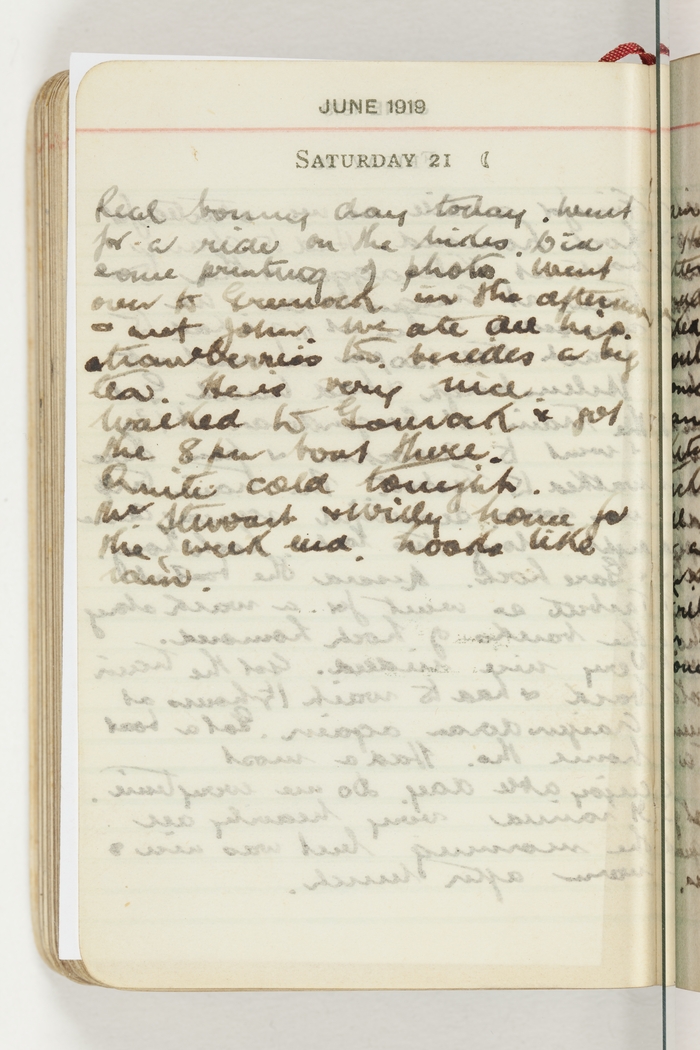 JUNE 1919
SATURDAY 21
Real bonny day today. Went
for a ride on the bikes. Did
some printing of photos. Went
over to Greenock in the afternoon
& met John. We ate all his
strawberries too. besides a big
tea. He is very nice.
Walked to Gourock & got
the 8 pm boat there.
Quite cold tonight.
Mr Stewart & Willy home for
the week end. Looks like
rain.